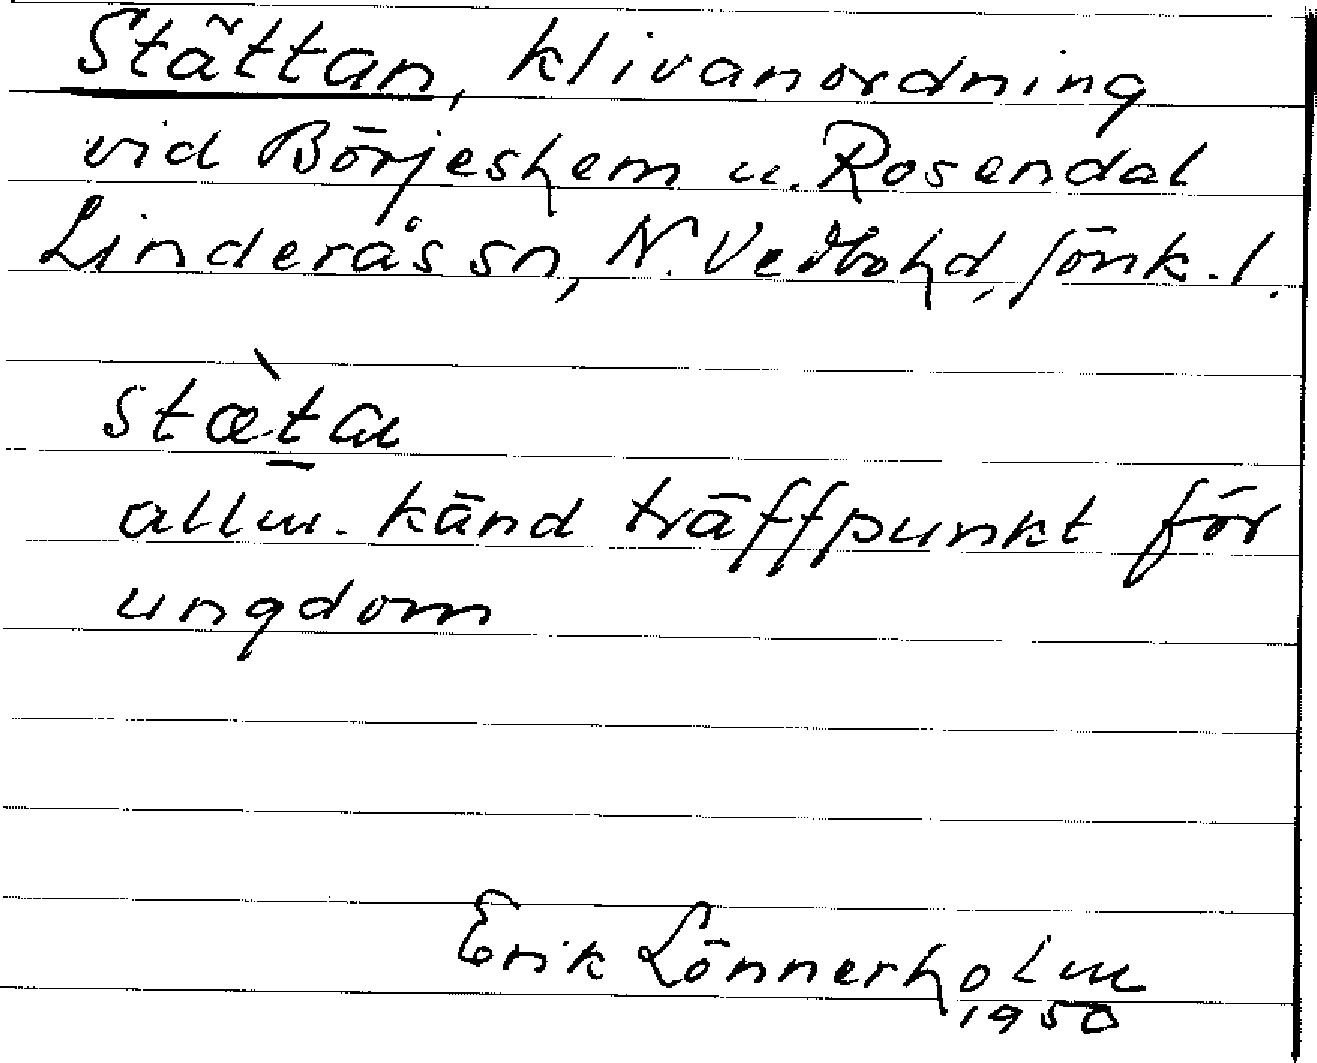 Stättan, klivanordning
vid Börjeshem u. Rosendal
Linderås sn, N. Vedbohd, Jönk. l.
stæ̀ta
allm. känd träffpunkt för
ungdom
Erik Lönnerholm
1950